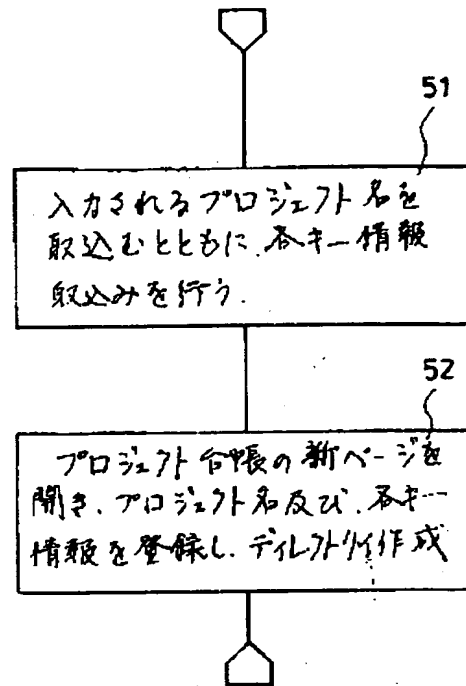 51
入力されるプロジェクト名を
取込むとともに、各キー情報
取込みを行う.
52
プロジェクト台帳の新ページを
開き、プロジェクト名及び、各キー
情報を登録し、ディレクトリィ作成